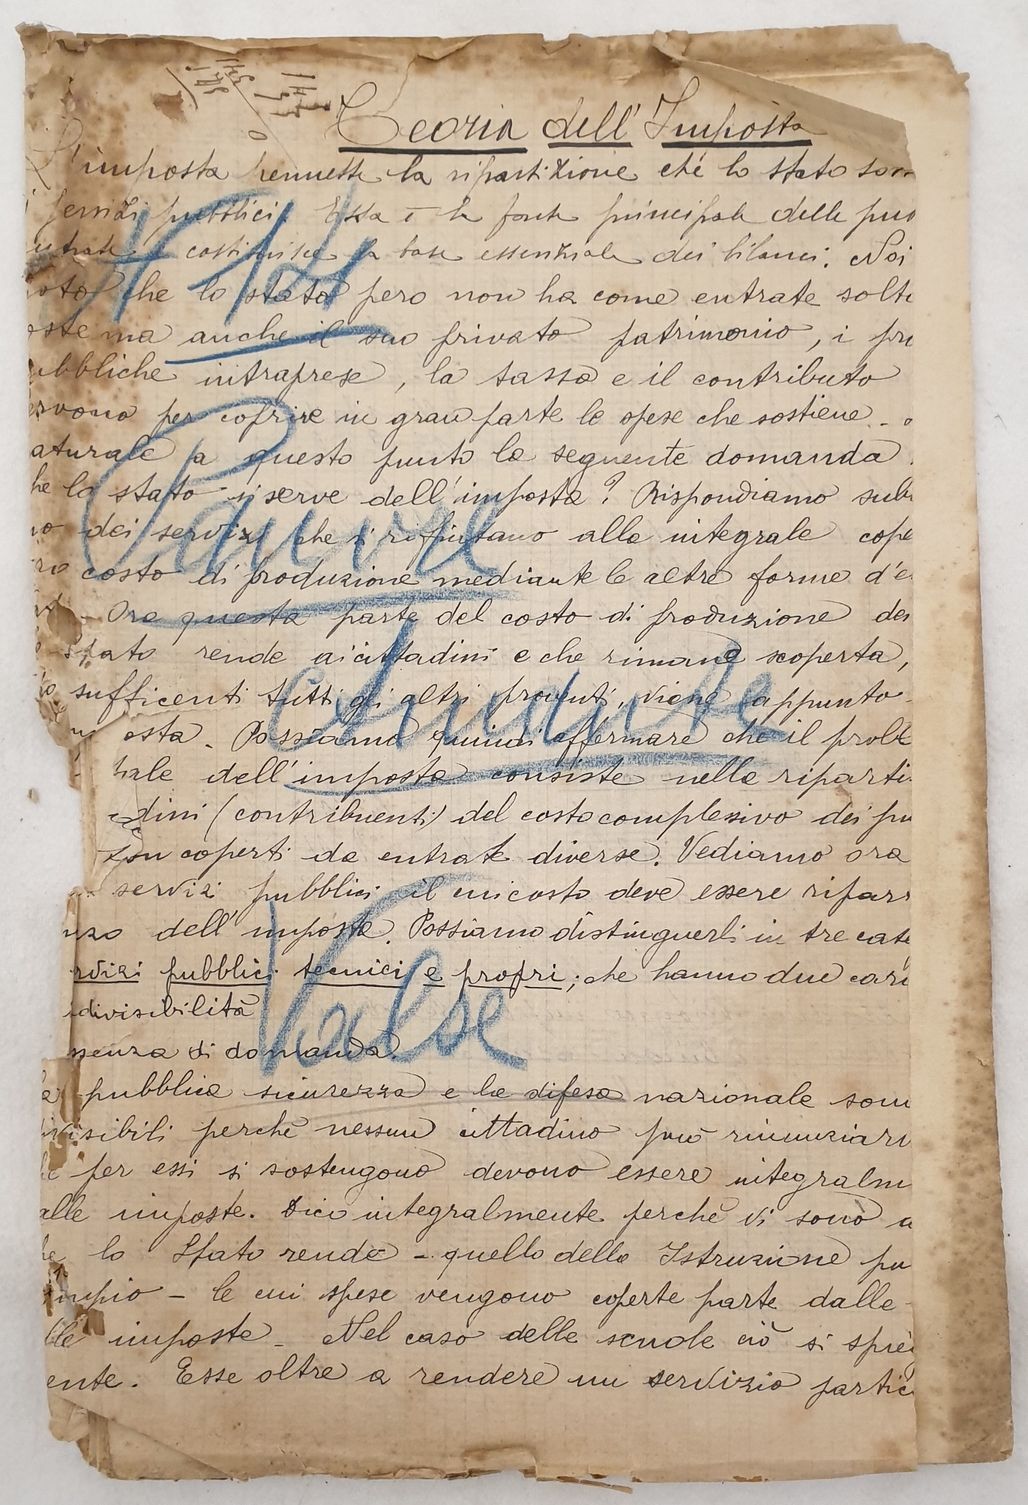 Teoria dell'Imposta
L'imposta permette la ripartizione che lo stato
servizi pubblici. Essa è la fonte principale delle
costituisce la base essenziale dei bilanci. Noi
che lo stato pero non ha come entrate
ma anche il suo privato patrimonio, i
intraprese, la tassa e il contributo
per coprire in gran parte le spese che sostiene.
a questo punto la seguente domanda
lo stato si serve dell'imposta? Rispondiamo
dei servizi che si rifiutano alla integrale
costo di produzione mediante le altre forme
Ora questa parte del costo di produzione dei
Stato rende ai cittadini e che rimane scoperta,
sufficenti tutti gli altri proventi, viene appunto
osta. Possiamo quindi affermare che il
dell'imposta consiste nella riparti
dini (contribuenti) del costo complessivo dei
coperti da entrate diverse. Vediamo ora
servizi pubblici il cui costo deve essere
dell'imposta. Possiamo distinguerli in tre
rvizi pubblici tecnici e propri; che hanno due
divisibilità
ssenza di domanda.
pubblica sicurezza e la difesa nazionale
visibili perchè nessun cittadino può
per essi si sostengono devono essere
alle imposte. Dico integralmente perchè vi sono
lo Stato rende – quello della Istruzione
– le cui spese vengono coperte parte dalle
imposte – Nel caso delle scuole ciò si
ente. Esse oltre a rendere un servizio
N 14
Pauvre
Valse